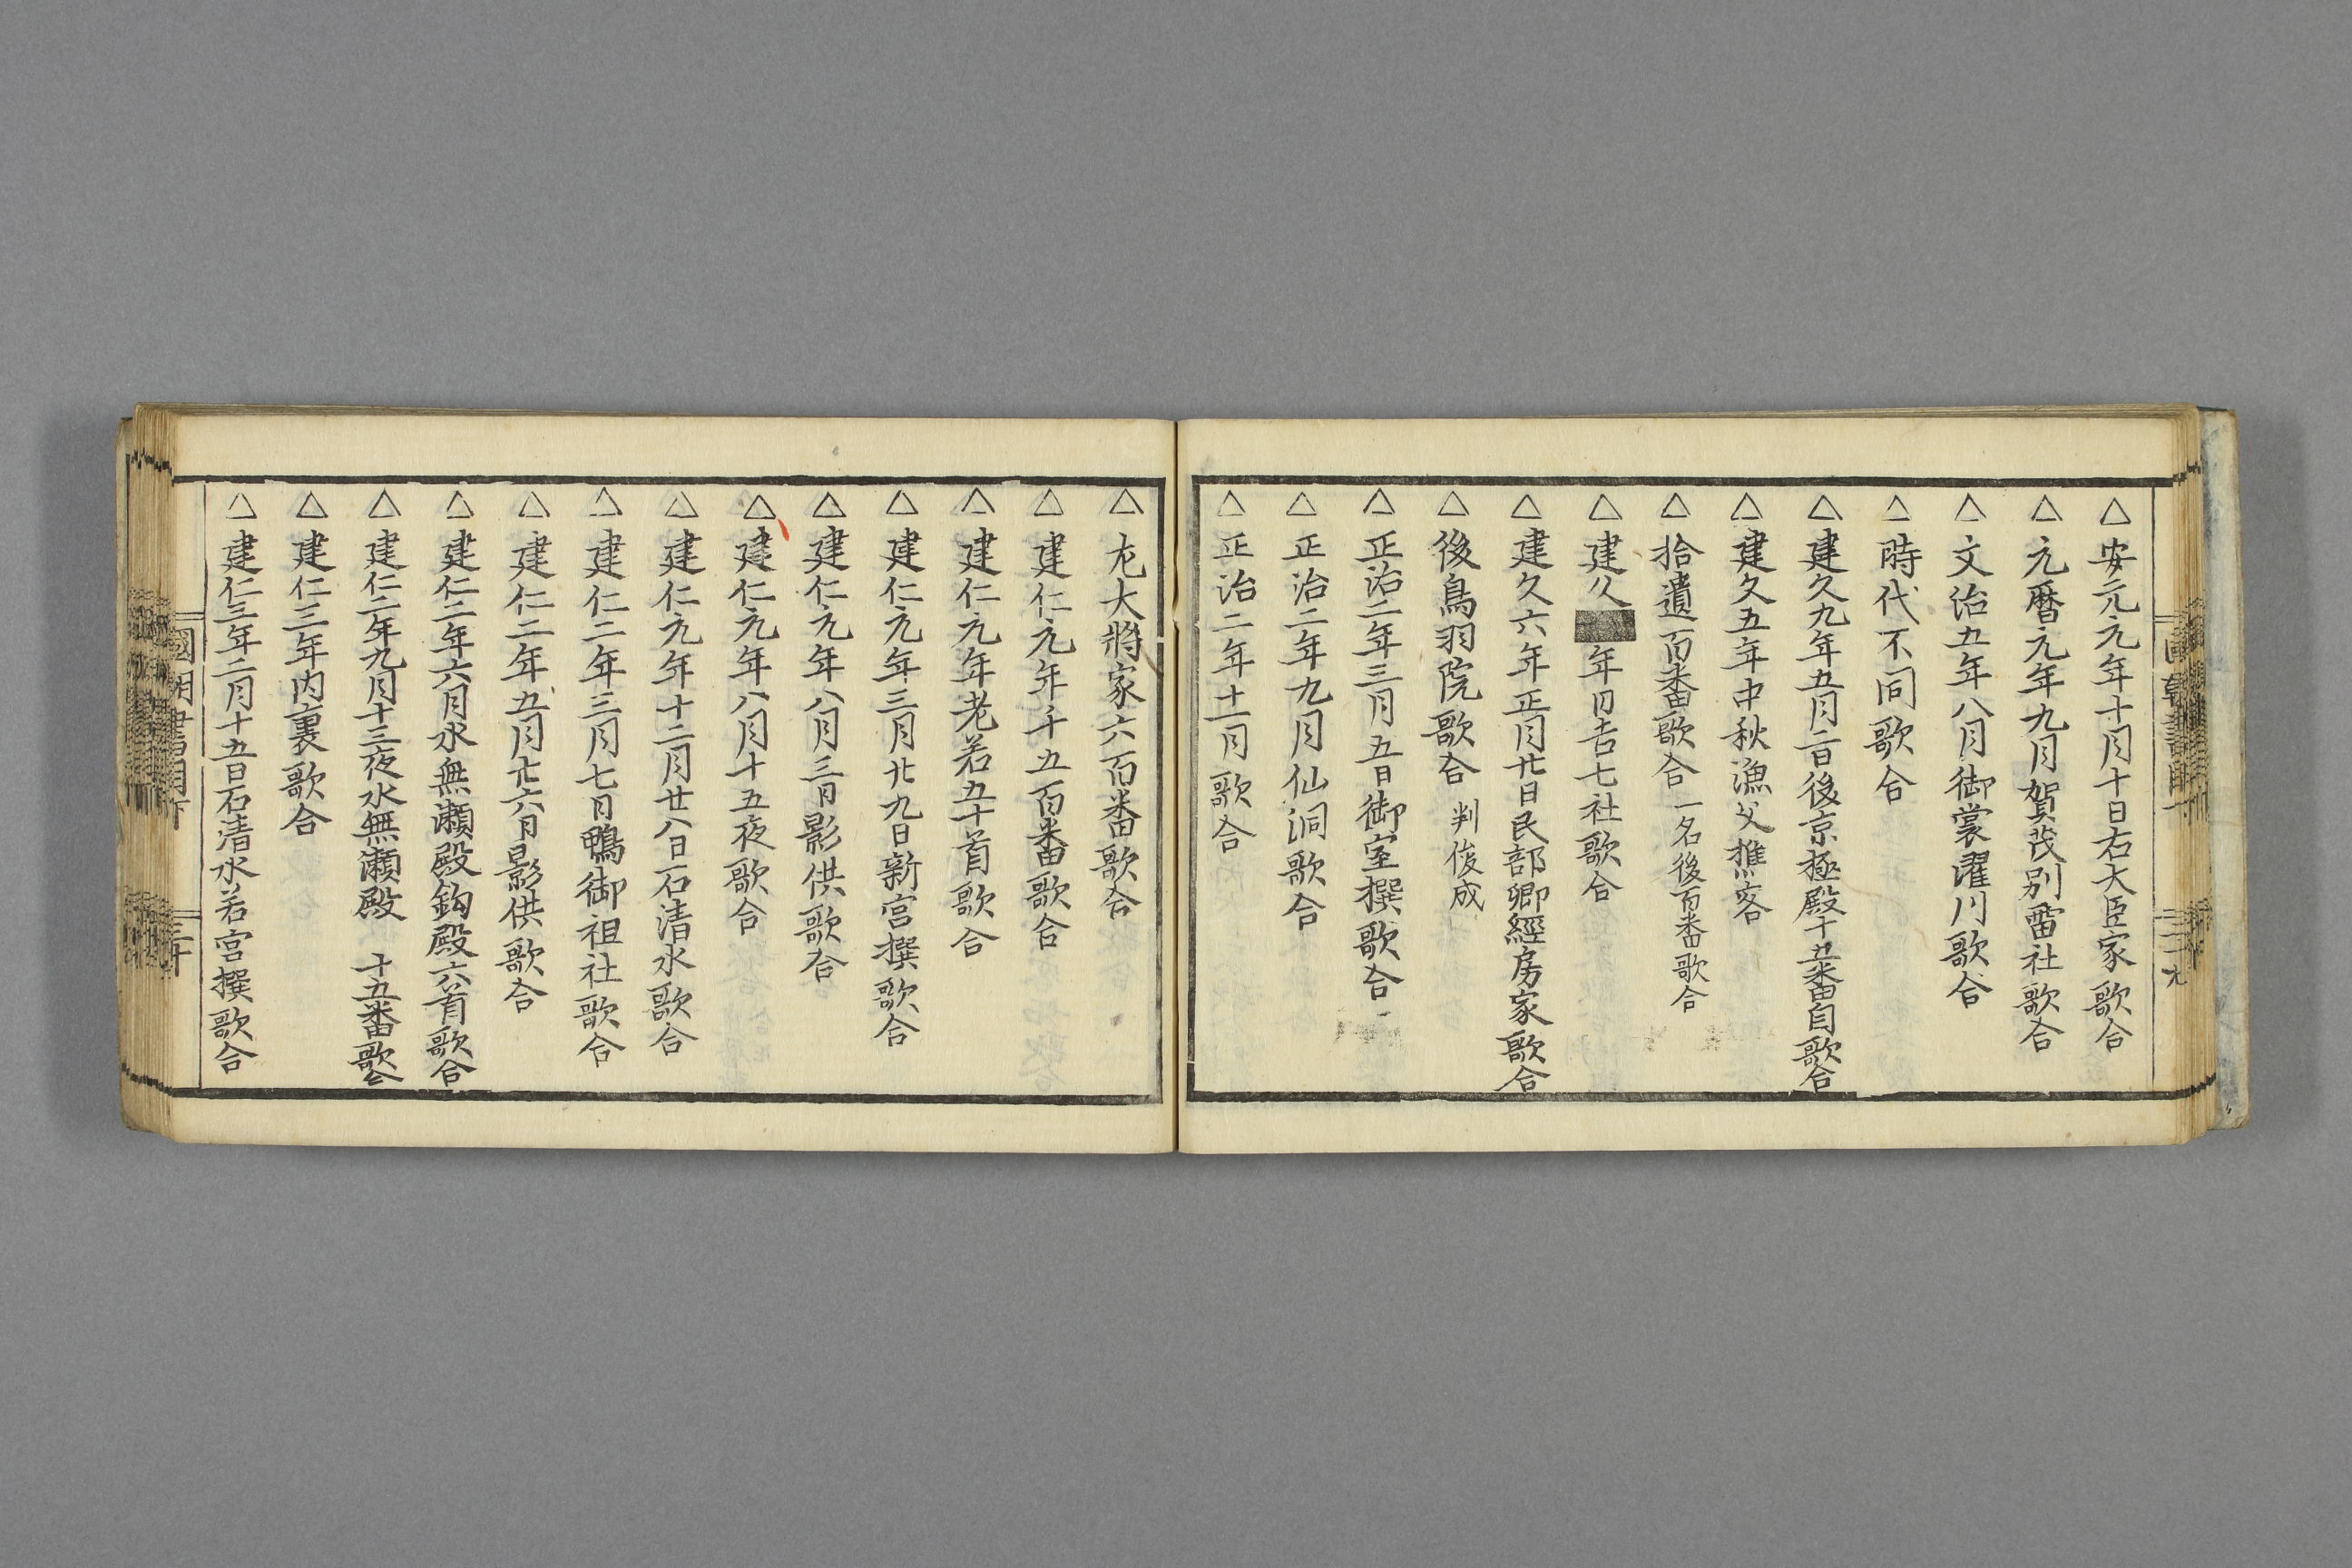 △安元元年十月十日右大臣家歌合
△元暦元年九月賀茂別雷社歌合
△文治五年八月御裳濯川歌合
△時代不同歌合
△建久九年五月二日後京極殿十五番自歌合
△建久五年中秋漁父樵客
△拾遺百番歌合 一名後百番歌合
△建久 年日吉七社歌合
△建久六年正月廿日民部卿經房家歌合
△後鳥羽院歌合 判俊成
△正治二年三月五日御室撰歌合
△正治二年九月仙洞歌合
△正治二年十一月歌合
△左大將家六百番歌合
△建仁元年千五百番歌合
△建仁元年老若五十首歌合
△建仁元年三月廿九日新宮撰歌合
△建仁元年八月三日影供歌合
△建仁元年八月十五夜歌合
△建仁元年十二月廿八日石清水歌合
△建仁二年三月七日鴨御祖社歌合
△建仁二年五月廿六日影供歌合
△建仁二年六月水無瀬殿釣殿六首歌合
△建仁二年九月十三夜水無瀬殿 十五番歌合
△建仁三年内裏歌合
△建仁三年二月十五日石清水若宮撰歌合